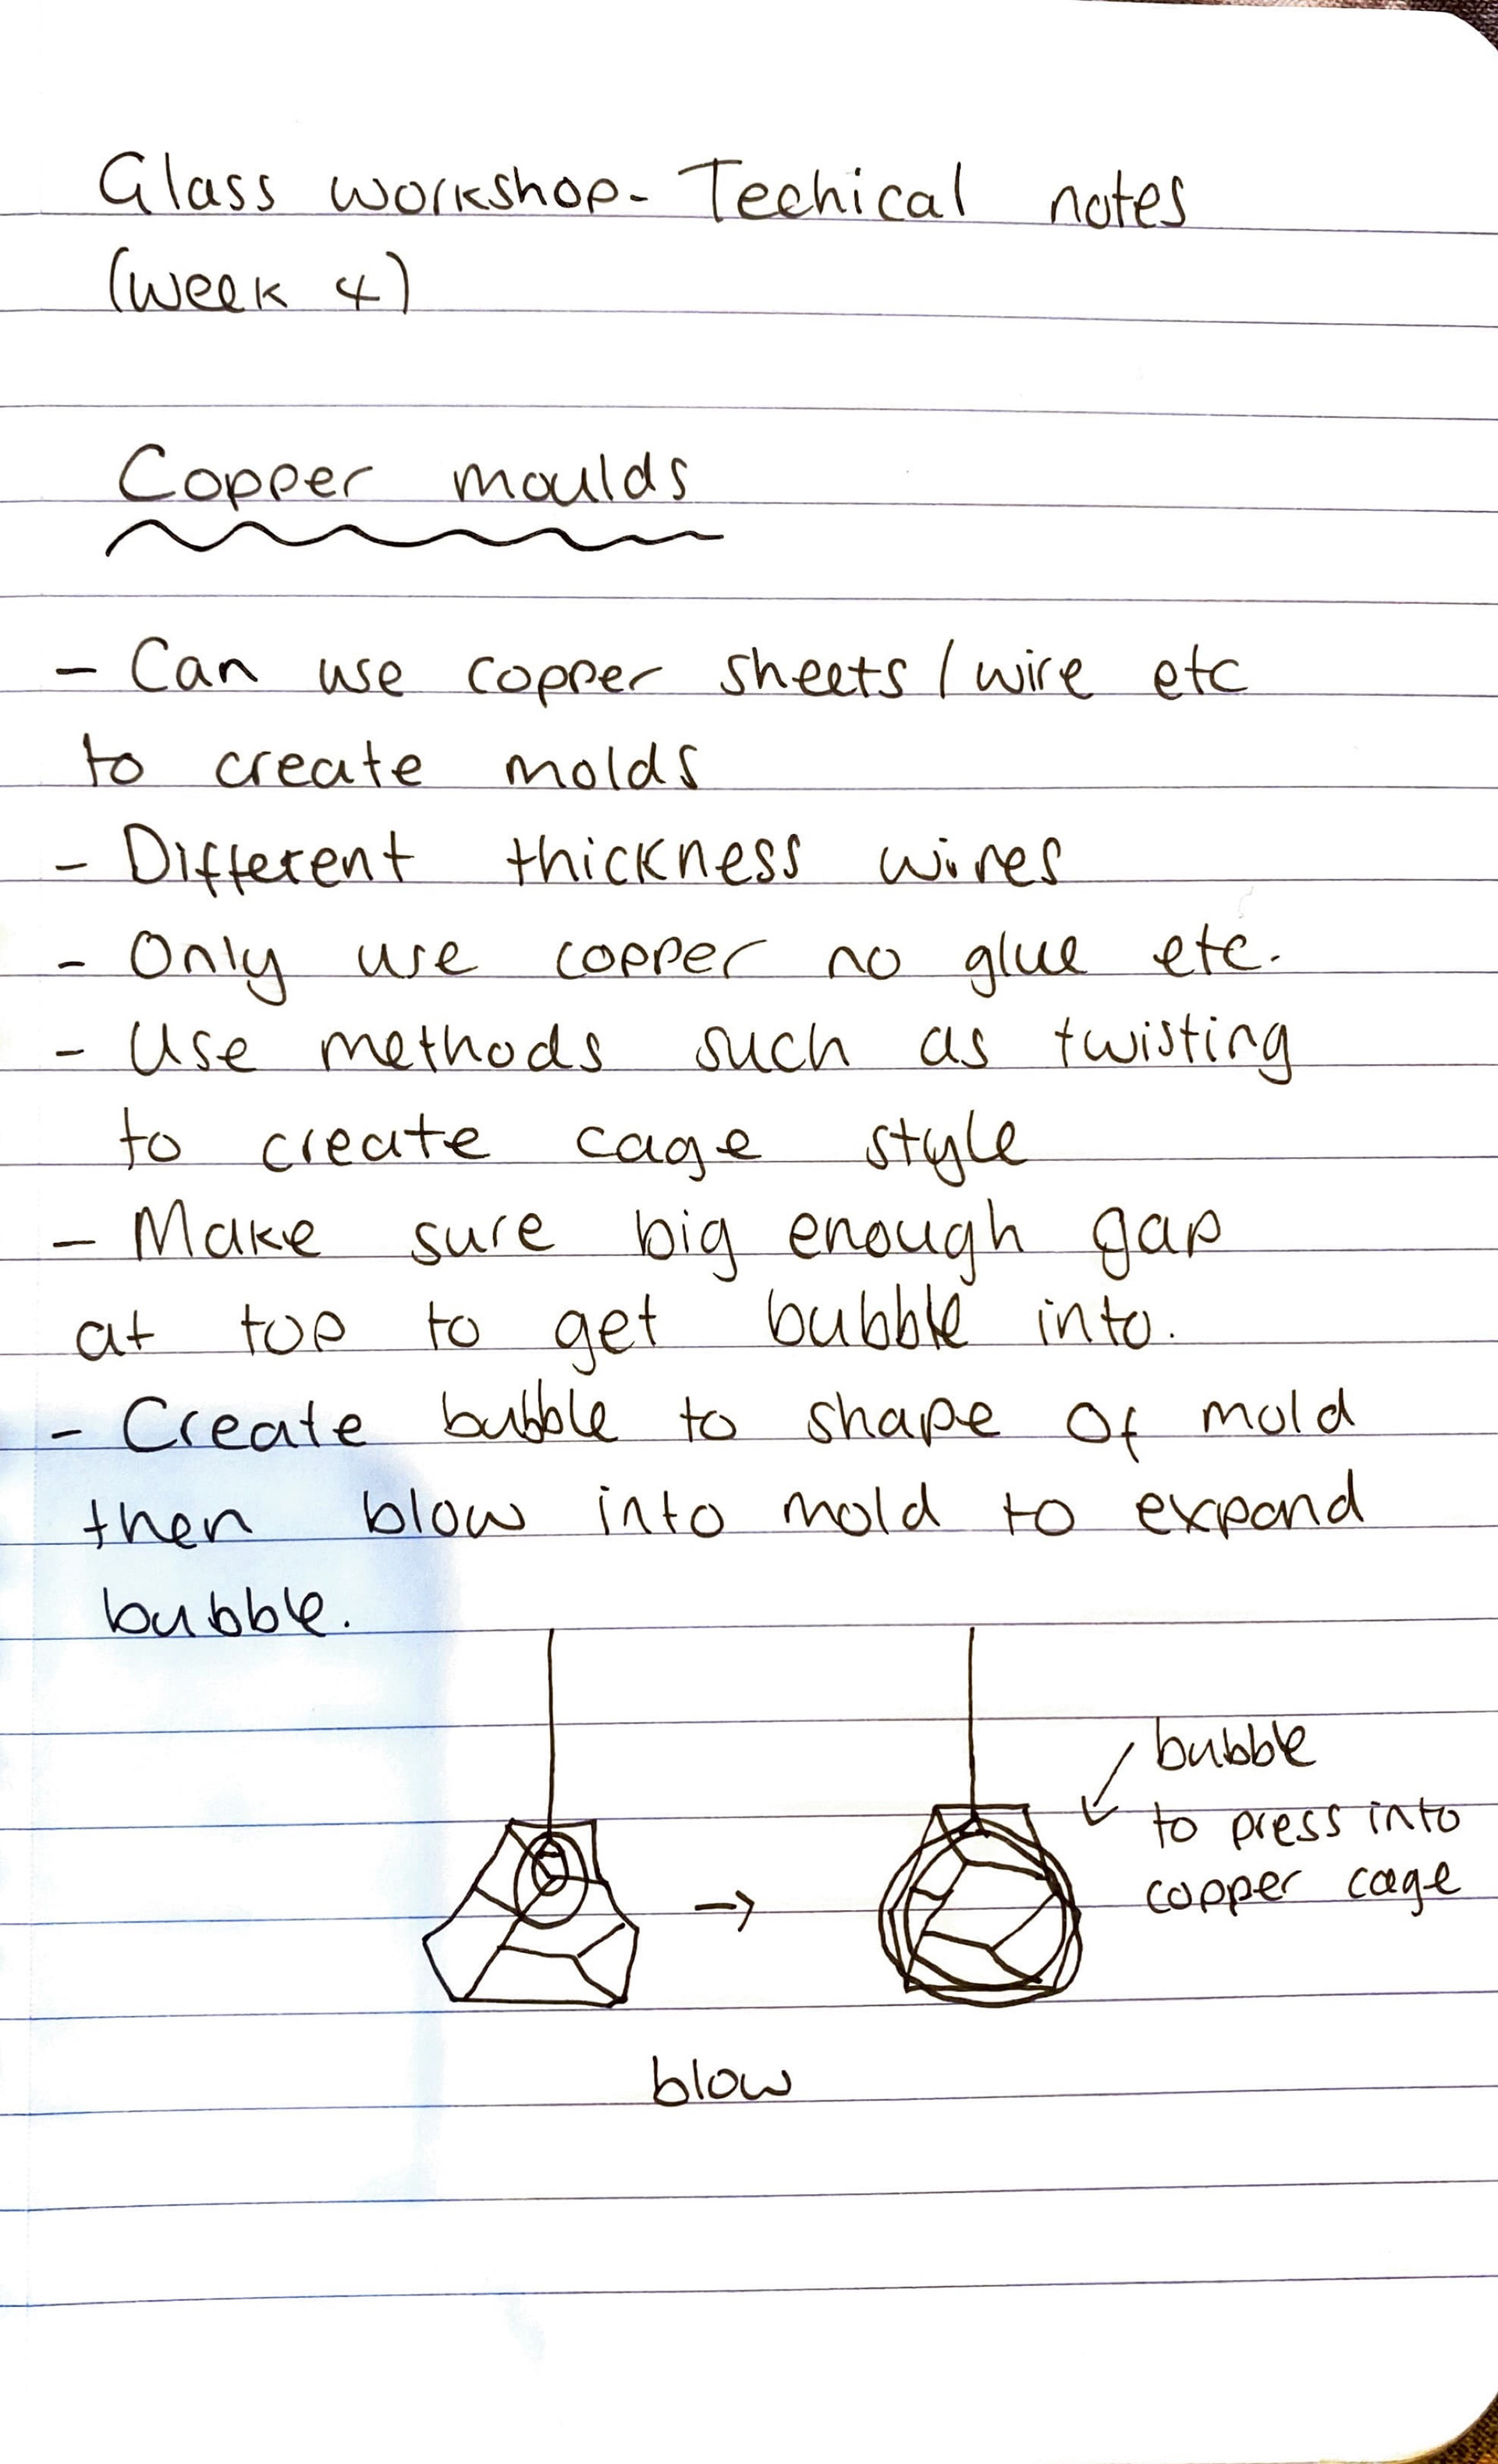 Glass workshop- Techical notes
(week 4)
Copper moulds
- Can use copper sheets / wire etc
to create molds
- Different thickness wires
- Only use copper no glue etc.
- Use methods such as twisting
to create cage style
- Make sure big enough gap
at top to get bubble into.
- Create bubble to shape of mold
then blow into mold to expand
bubble.
bubble
to press into
copper cage
blow